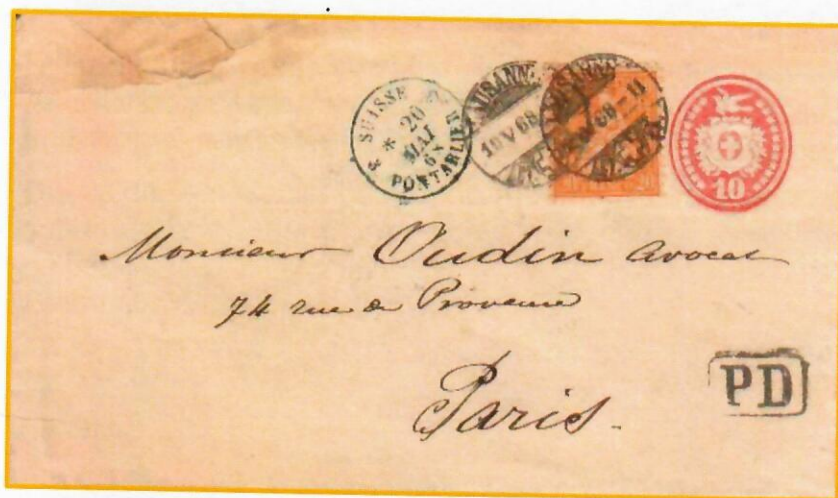 SUISSE
20
MAI
68
3 PONTARLIER
LAUSANNE
19 V 68
LAUSANNE
V 68-11
20
10
Monsieur Oudin avocat
74 rue de Provence
Paris.
PD